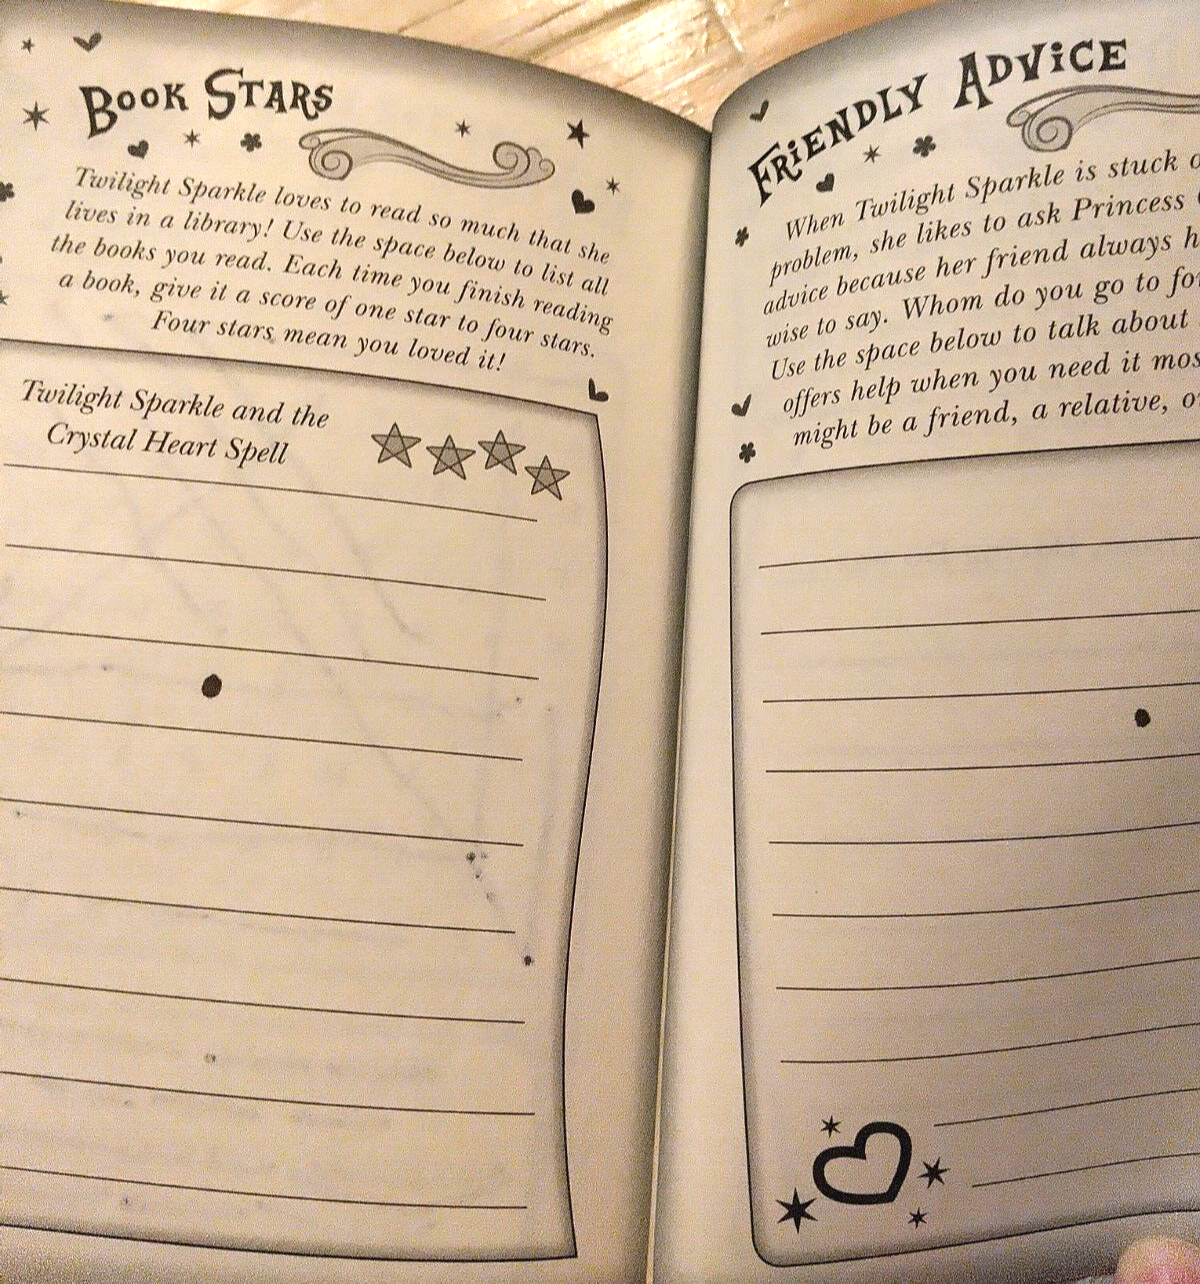 Book Stars
Twilight Sparkle loves to read so much that she
lives in a library! Use the space below to list all
the books you read. Each time you finish reading
a book, give it a score of one star to four stars.
Four stars mean you loved it!
Twilight Sparkle and the
Crystal Heart Spell
Friendly Advice
When Twilight Sparkle is stuck
problem, she likes to ask Princess
advice because her friend always
wise to say. Whom do you go to
Use the space below to talk about
offers help when you need it
might be a friend, a relative,